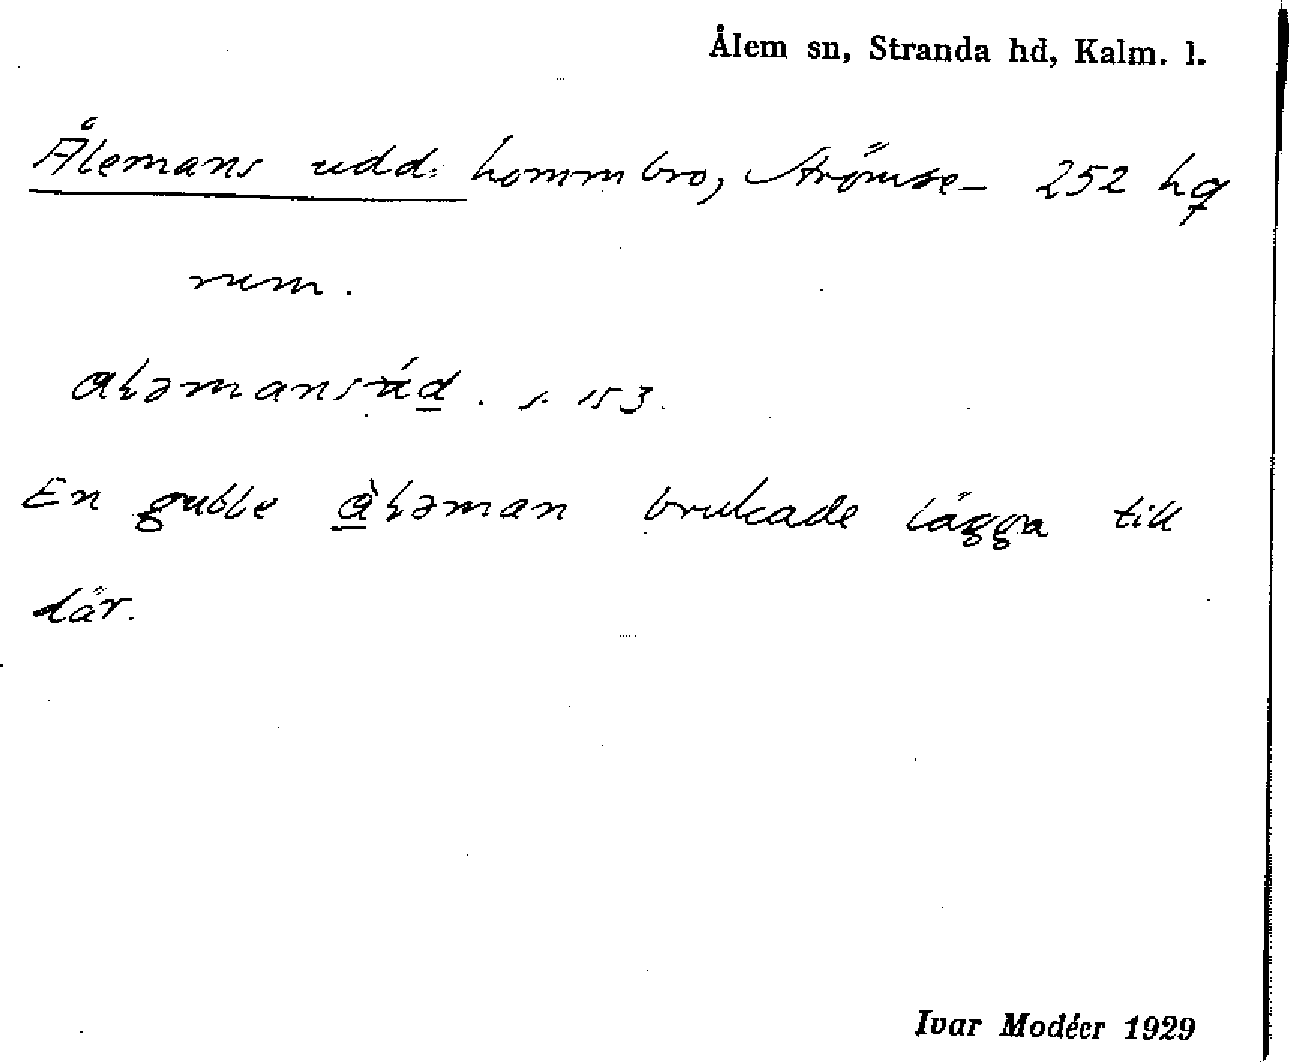 Ålem sn, Stranda hd, Kalm. l.
Ålemans udd: hommbro, Strömse- 252 hq
rum.
aləmansúd . s. 153.
En gubbe àləman brukade lägga till
där.
Ivar Modéer 1929